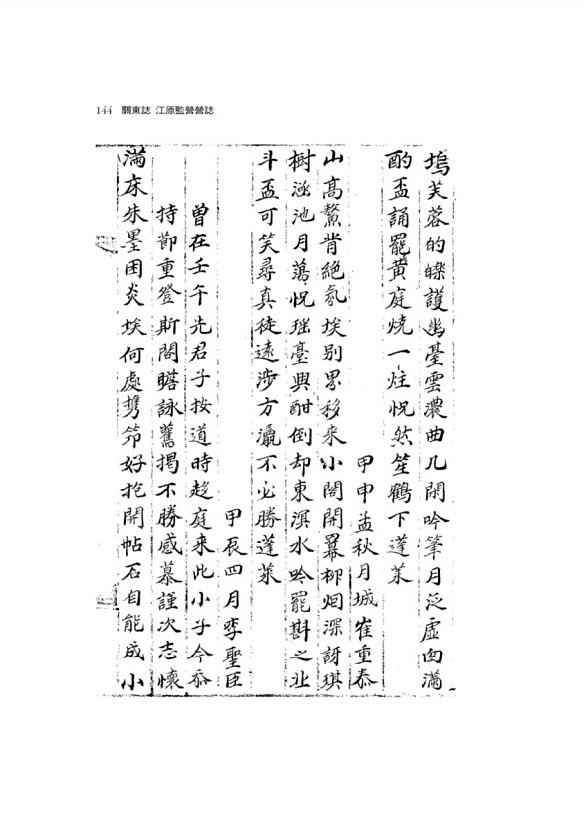 144 關東誌 江原監營營誌
塢芙蓉的皪護幽臺雲濃曲几閑吟筆月泛虛囱滿
酌盃誦罷黃庭燒一炷怳然笙鶴下蓬萊
甲申孟秋月城崔重泰
山高鰲背絶氛埃別界移來小閤開羃柳烟深訝琪
樹涵池月蕩怳瑤臺興酣倒却東溟水吟罷斟之北
斗盃可笑尋真徒遠涉方瀛不必勝蓬萊
甲辰四月李聖臣
曾在壬午先君子按道時趍庭来此小子今忝
持節重登斯閤瞻詠舊揭不勝感慕謹次志懷
滿床朱墨困炎埃何處携笻好抱開帖石自能成小